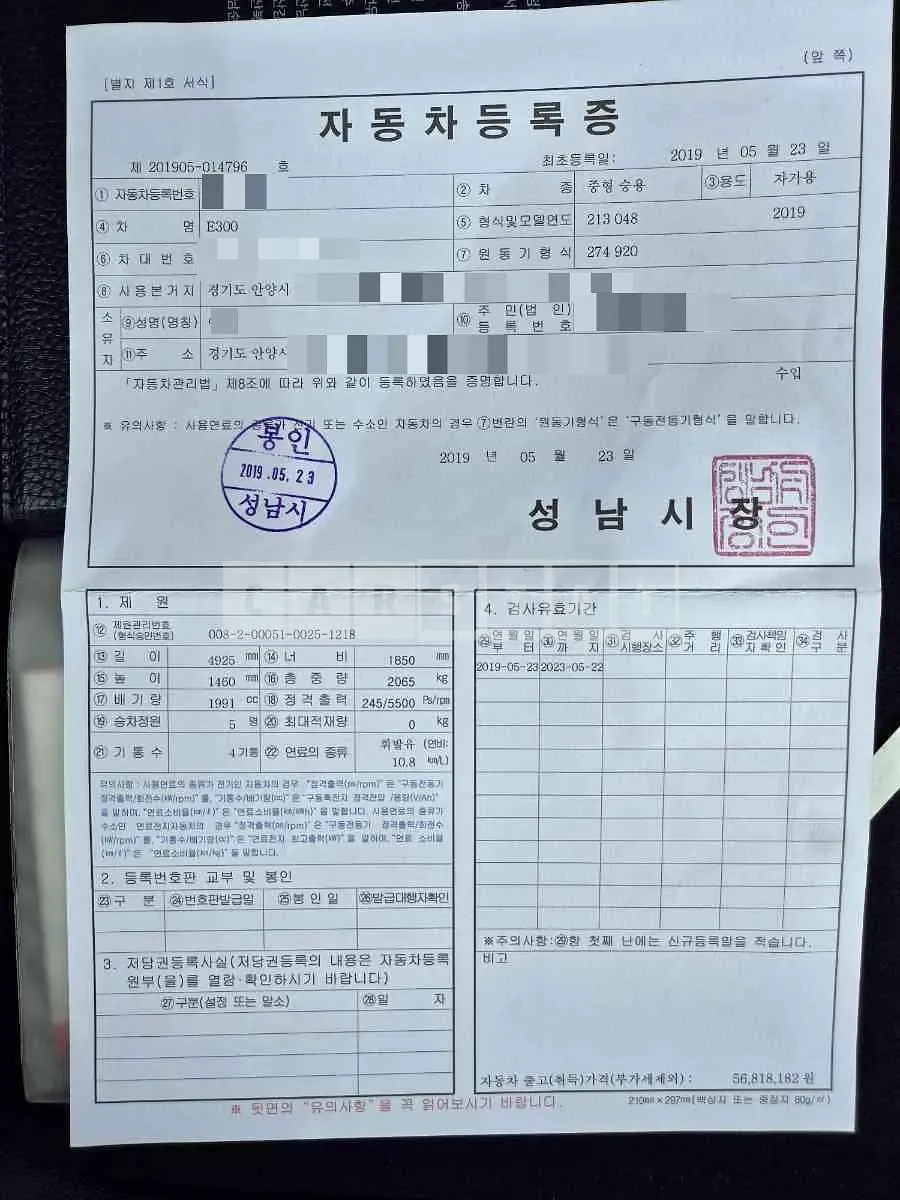 (앞 쪽)
[별지 제1호 서식]
자동차등록증
제 201905-014796 호 최초등록일: 2019 년 05 월 23 일
① 자동차등록번호 ② 차 종 중형 승용 ③용도 자가용
④ 차 명 E300 ⑤ 형식및모델연도 213 048 2019
⑥ 차 대 번 호 ⑦ 원 동 기 형 식 274 920
⑧ 사 용 본 거 지 경기도 안양시
소유자 ⑨성명(명칭) ⑩ 주 민(법 인) 등 록 번 호
⑪주 소 경기도 안양시
「자동차관리법」 제8조에 따라 위와 같이 등록하였음을 증명합니다. 수입
※ 유의사항 : 사용연료의 종류가 전기 또는 수소인 자동차의 경우 ⑦번란의 '원동기형식'은 '구동전동기형식'을 말합니다.
봉인
2019.05.23
성남시
2019 년 05 월 23 일
성 남 시 장
CARSTAT
1. 제 원
⑫ 제원관리번호 (형식승인번호) 008-2-00051-0025-1218
⑬ 길 이 4925 mm ⑭ 너 비 1850 mm
⑮ 높 이 1460 mm ⑯ 총 중 량 2065 kg
⑰ 배 기 량 1991 cc ⑱ 정 격 출 력 245/5500 Ps/rpm
⑲ 승차정원 5 명 ⑳ 최대적재량 0 kg
㉑ 기 통 수 4기통 ㉒ 연료의 종류 휘발유 (연비: 10.8 km/L)
유의사항 : 사용연료의 종류가 전기인 자동차의 경우 "정격출력(ps/rpm)"은 "구동전동기
정격출력/회전수(kW/rpm)"를, "기통수/배기량(cc)"은 "구동축전지 정격전압 /용량(V/Ah)"
을 말하며, "연료소비율(km/ℓ)"은 "연료소비율(km/kWh)"을 말합니다. 사용연료의 종류가
수소인 연료전지자동차의 경우 "정격출력(ps/rpm)"은 "구동전동기 정격출력/회전수
(kW/rpm)"를, "기통수/배기량(cc)"은 "연료전지 최고출력(kW)"을 말하며, "연료 소비율
(km/ℓ)"은 "연료소비율(km/kg)"을 말합니다.
2. 등록번호판 교부 및 봉인
㉓구 분 ㉔번호판발급일 ㉕봉 인 일 ㉖발급대행자확인
3. 저당권등록사실(저당권등록의 내용은 자동차등록
원부(을)를 열람·확인하시기 바랍니다)
㉗구분(설정 또는 말소) ㉘일 자
4. 검사유효기간
㉙연 월 일 부 터 ㉚연 월 일 까 지 ㉛검 사 시행장소 ㉜주 행 거 리 ㉝검사책임 자 확 인 ㉞검 사 구 분
2019-05-23 2023-05-22
※주의사항:㉙항 첫째 난에는 신규등록일을 적습니다.
비고
자동차 출고(취득)가격(부가세제외) : 56,818,182 원
※ 뒷면의 "유의사항"을 꼭 읽어보시기 바랍니다.
210mm×297mm[백상지 또는 중질지 80g/㎡]